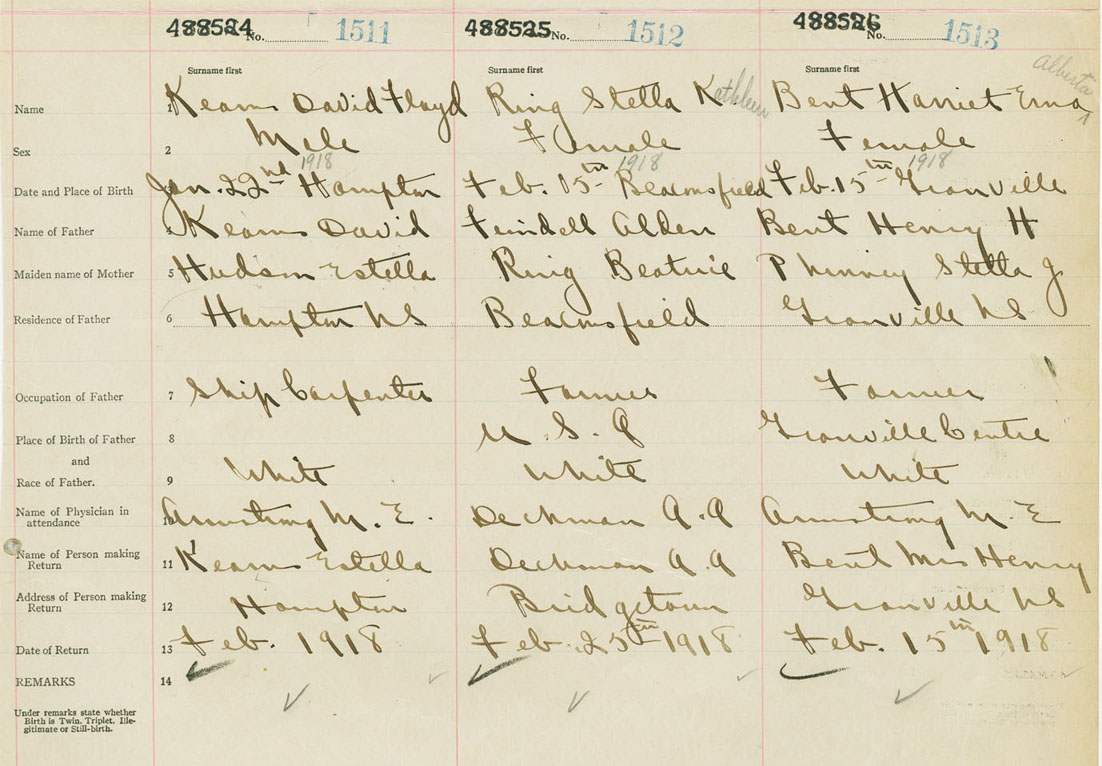 488524 No. 1511 488525 No. 1512 488526 No. 1513
Surname first Surname first Surname first
Name 1 Kearns David Floyd Ring Stella Kathleen Bent Harriet Erna Alberta
Sex 2 Male Female Female
1918 1918 1918
Date and Place of Birth Jan. 22nd Hampton Feb. 15th Beaconsfield Feb. 15th Granville
Name of Father Kearns David Alden Bent Henry H
Maiden name of Mother 5 Hudson Estella Ring Beatrice Phinney Stella J
Residence of Father 6 Hampton NS Beaconsfield Granville NS
Occupation of Father 7 Ship Carpenter Farmer Farmer
Place of Birth of Father 8 U.S.A Granville Centre
and
Race of Father. 9 White White White
Name of Physician in attendance 10 Armstrong M. E. Deckman A.A Armstrong M. E
Name of Person making Return 11 Kearns Estella Deckman A.A Bent Mrs Henry
Address of Person making Return 12 Hampton Bridgetown Granville NS
Date of Return 13 Feb. 1918 Feb. 25th 1918 Feb. 15th 1918
REMARKS 14
Under remarks state whether
Birth is Twin, Triplet, Ille-
gitimate or Still-birth.